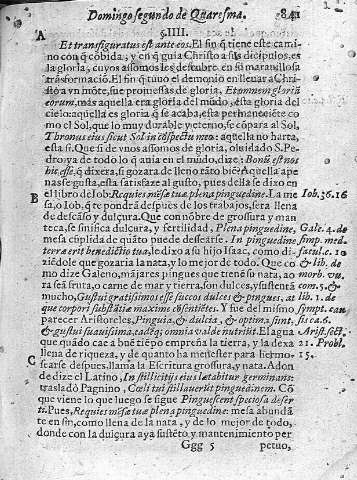 Domingo segundo de Quaresma. 841
A §. IIII.
Et transfiguratus est ante eos. El fin q̃ tiene este cami
no con q̃ cõbida, y en q̃ guia Christo a sus dicipulos, es
la gloria, cuyos assomos les descubre, en su maravillosa
trãsformaciõ. El fin q̃ tuvo el demonio en llevar a Chri
sto a vn mõte, fue promessas de gloria, Et omnem gloriã
eorum. mas aquella era gloria del mũdo, esta gloria del
cielo: aquella es gloria q̃ se acaba, esta permaneciẽte co
mo el Sol, que lo muy durable y eterno, se cõpara al Sol,
Thronus eius sicut Sol in conspectu meo: aquella no harta,
esta si. Que si de vnos assomos de gloria, olvidado S. Pe-
dro, ya de todo lo q̃ avia en el mũdo, dize: Bonũ est nos
hic esse, q̃ dixera, si gozara de lleno tãto biẽ? Aquella ape
nas se gusta, esta satisface al gusto, pues della se dixo en
B el libro de Iob: Requies mẽsæ tuæ plena pinguedine. La me- Iob. 36. 16
sa, o Iob, q̃ te pondrã despues de los trabajos, sera llena
de descãso y dulçura. Que con nõbre de grossura y man
teca, se sinifica dulçura, y fertilidad, Plena pinguedine, Gale. 4. de
mesa cũplida de quãto puede dessearse. In pinguedine simp. med
terræ erit benedictio tua, le dixo a su hijo Isaac, como di- fatul. c. 19
ziẽdole que gozaria la nata, y lo mejor de todo. Que co & lib. de
mo dize Galeno, mãjares pingues que tiene su nata, ao morb. vu.
ra seã fruta, o carne de mar y tierra, son dulces, y sustentã com. 5, &
mucho, Gustui gratissimos esse succos dulces & pingues, at lib. 1. de
que corpori substãtiæ maxime consentientes. Y fue del mismo sympt. cau
parecer Aristoteles, Pinguia, & dulcia, & optima sunt, sis ca. 6.
& gustui suavissima, adeq; omnia valde nutriũt. El agua Arist. sect.
que quãdo cae a buẽ tiẽpo empreña la tierra, y la dexa 21. Probl.
llena de riqueza, y de quanto ha menester para hermo- 15.
C searse despues, llama la Escritura grossura, y nata. Adon
de dize el Latino, In stillicitijs eius lætabitur germinans:
trasladò Pagnino, Cœli tui stillauerũt pinguedinem. Cõ
que viene lo que luego se sigue Pinguescent speciosa deser
ti. Pues, Requies mẽsæ tuæ plena pinguedine: mesa abundã
te en fin, como llena de la nata, y de lo mejor de todo,
donde con la dulçura aya sustẽto, y mantenimiento per
Ggg 5 petuo,